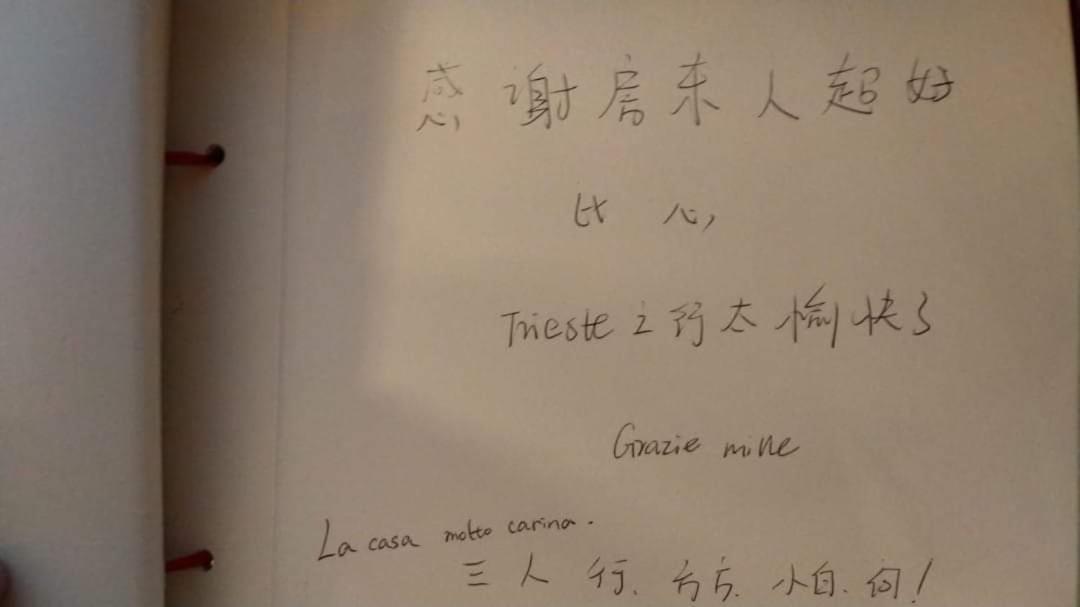 感谢房东人超好
比心
Trieste之行太愉快了
Grazie mille
La casa molto carina.
三人行、方方、小白、何!